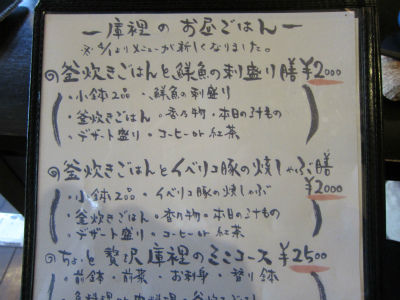 ー庫裡のお昼ごはんー
※4/1よりメニューが新しくなりました。
◎釜炊きごはんと鮮魚の刺盛り膳 ¥2000
・小鉢2品 ・鮮魚の刺盛り
・釜炊きごはん ・香の物 ・本日の汁もの
・デザート盛り ・コーヒーor紅茶
◎釜炊きごはんとイベリコ豚の焼しゃぶ膳
¥2000
・小鉢2品 ・イベリコ豚の焼しゃぶ
・釜炊きごはん ・香の物 ・本日の汁もの
・デザート盛り ・コーヒーor紅茶
◎ちょっと贅沢庫裡のミニコース ¥2500
・前鉢 ・前菜 ・お刺身 ・替り鉢